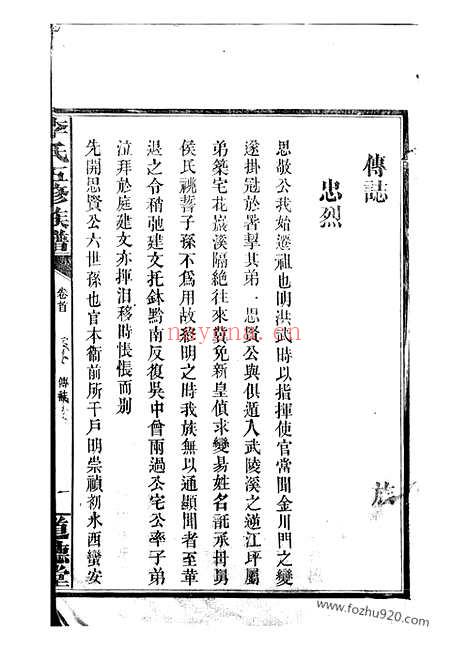 傳誌
忠烈
思敬公我始遷祖也明洪武時以指揮使官常聞金川門之變
遂掛冠於署挈其弟思
公與俱遁入武陵溪之蓮江坪屬
弟築宅花巖溪隔絕往來冀免新皇偵求變易姓名託承母舅
侯氏祧誓子孫不為用故終明之時我族無以通顯聞者至革
退之令稍弛建文托鉢黔南反復吳中曾兩過公宅公率子弟
泣拜於庭建文亦揮淚移時悵悵而別
先開思賢公六世孫也官本衛前所千戶明崇禎初水西蠻安
李氏五修族譜
卷首
傳誌
一
道德堂
族
nayona.cn
www.fozhu920.com